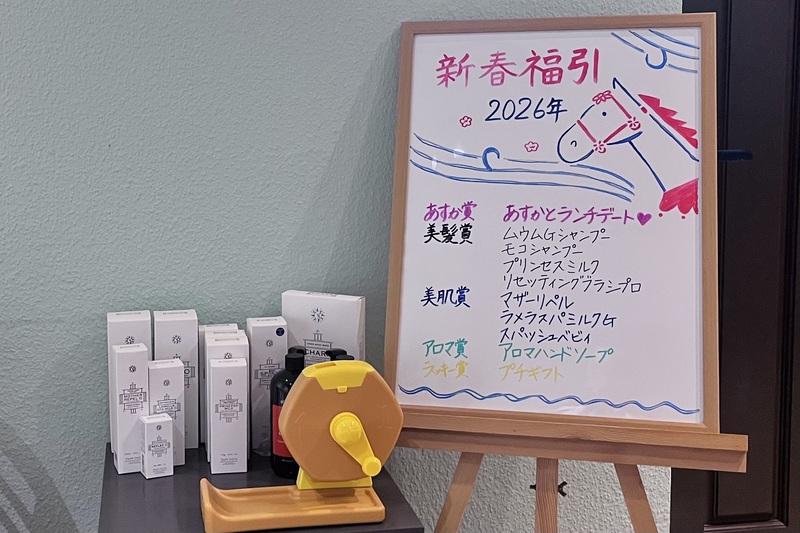 新春福引
2026年
あすか賞 あすかとランチデート♥
美髪賞 ムウムGシャンプー
モコシャンプー
プリンセスミルク
リセッティングブラシプロ
美肌賞 マザーリペル
ラメラスパミルクG
スパッシュベビィ
アロマ賞 アロマハンドソープ
ラッキー賞 プチギフト